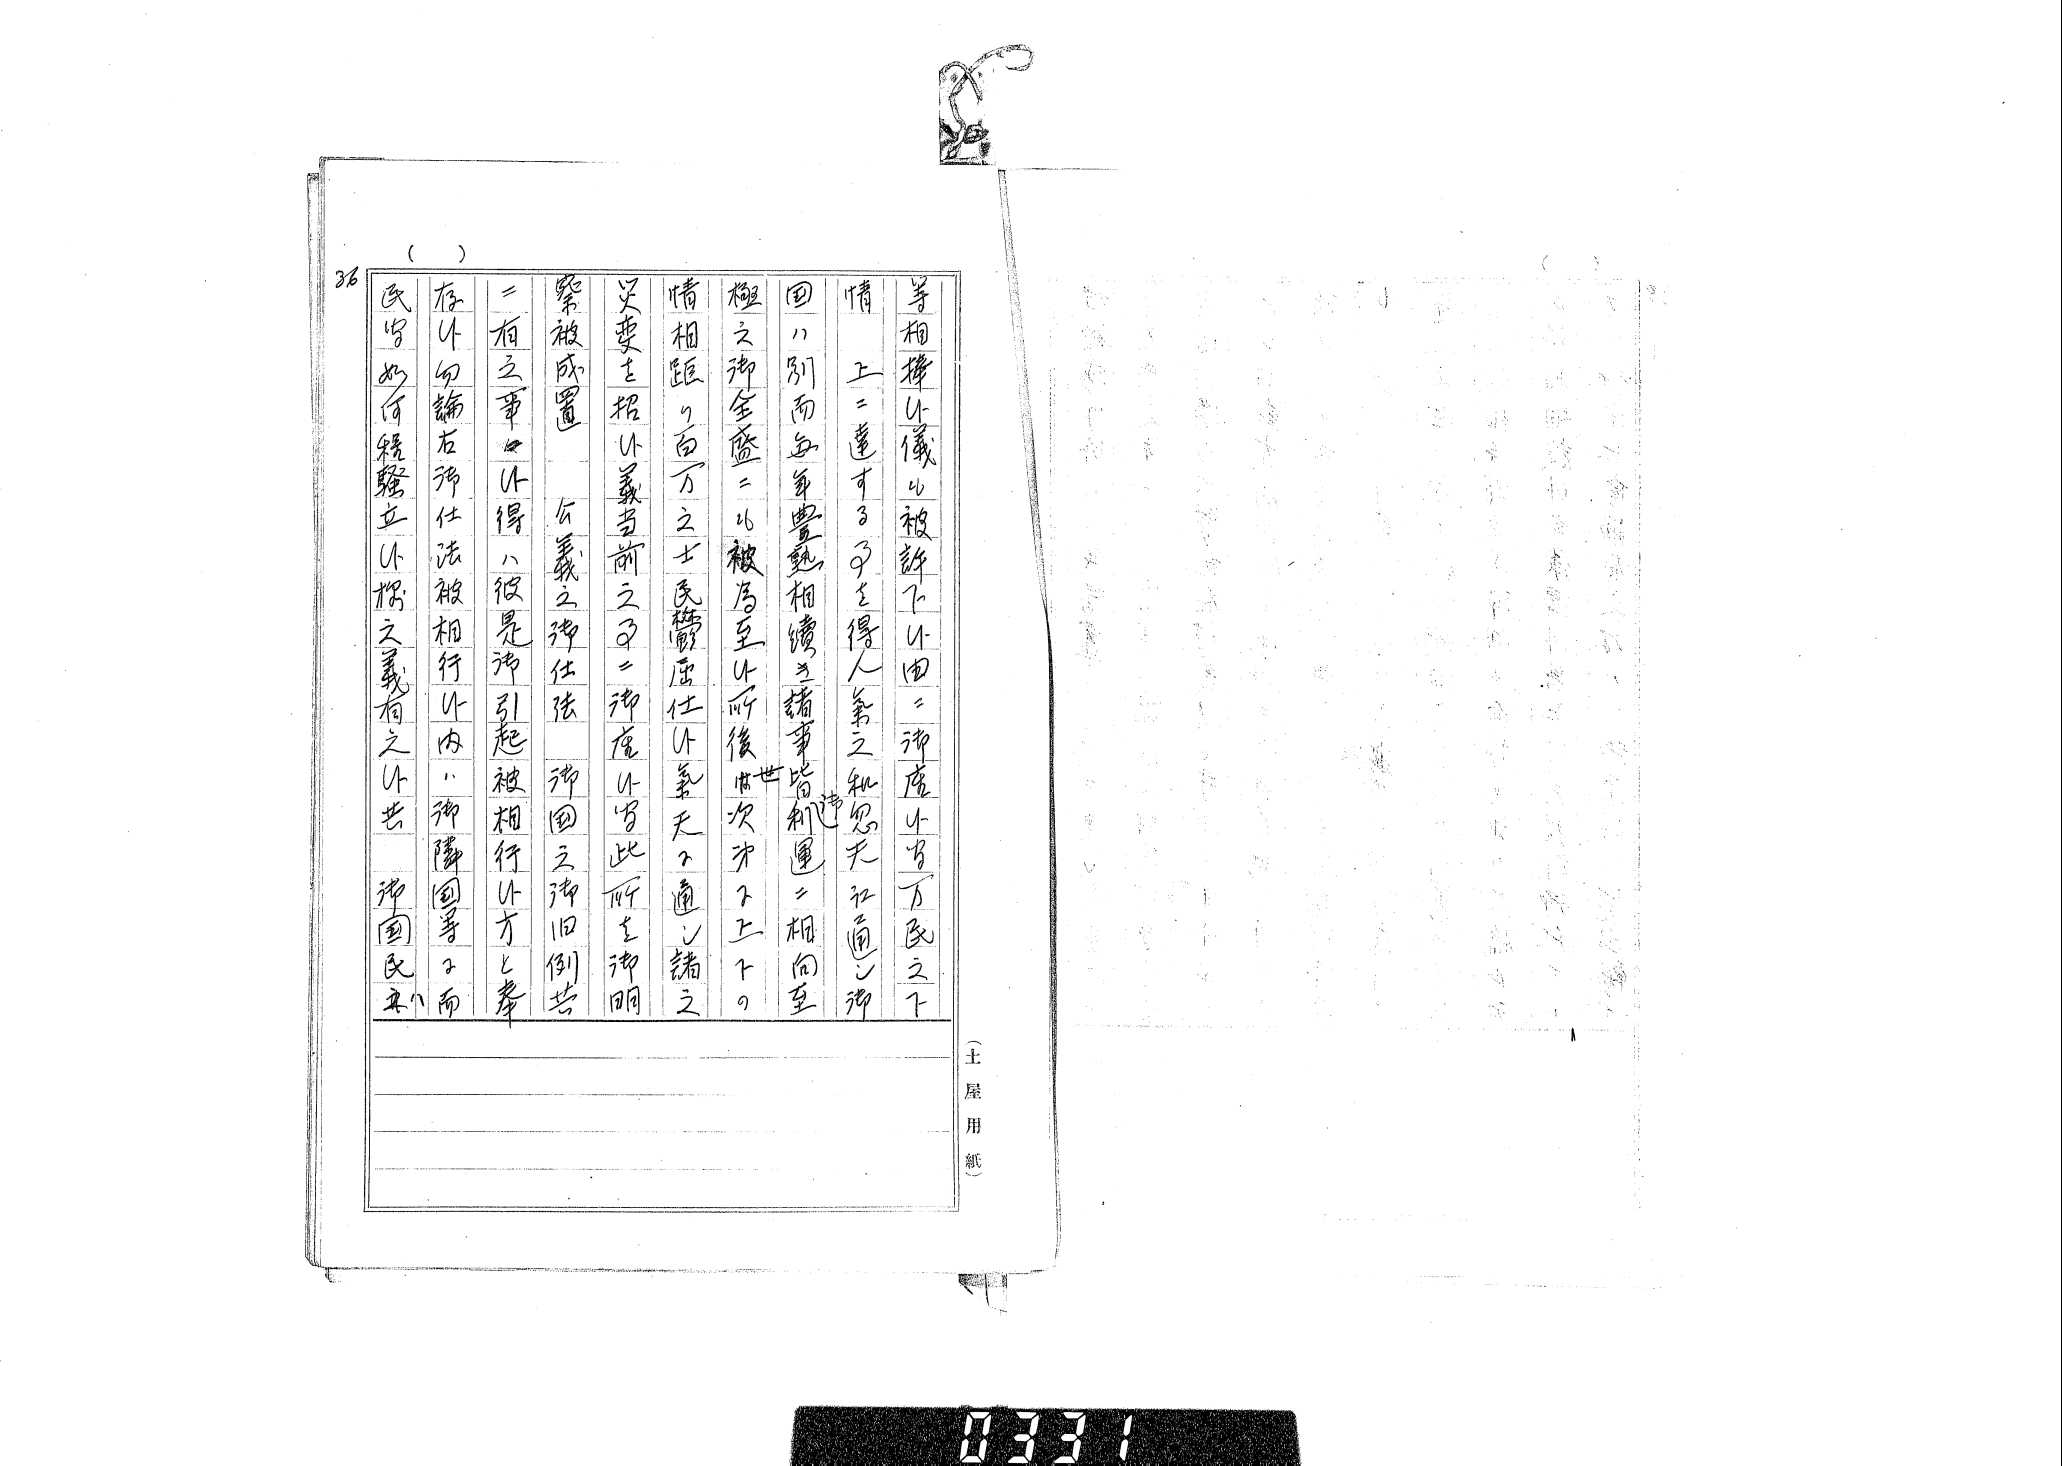 等相捧候儀も被許下候由ニ御座候間万民之下
情　上ニ達する事を得人氣之和忽天江通し御
国ハ別而毎年豊熟相續き諸事皆御利運ニ相向至
極之御全盛ニも被為至候所後世次第に上下の
情相距り百万之士民鬱屈仕候氣天に通し諸之
災変を招候義当前之事ニ御座候間此所を御明
察被成置　公義之御仕法　御国之御旧例共
ニ有之事ニ候得ハ彼是御引起被相行候方と奉
存候勿論右御仕法被相行候内ハ御隣国等に而
民間如何程騒立候様之義有之候共　御国民ハ
36
(　)
(土屋用紙)
0331